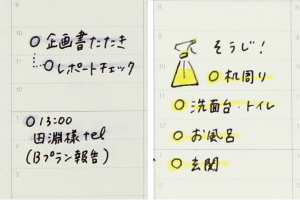 9
10
○ 企画書たたき
○ レポートチェック
11
12
1
○ 13:00
田淵様tel
(Bプラン報告)
2
3
そうじ!
○ 机周り
○ 洗面台・トイレ
○ お風呂
○ 玄関